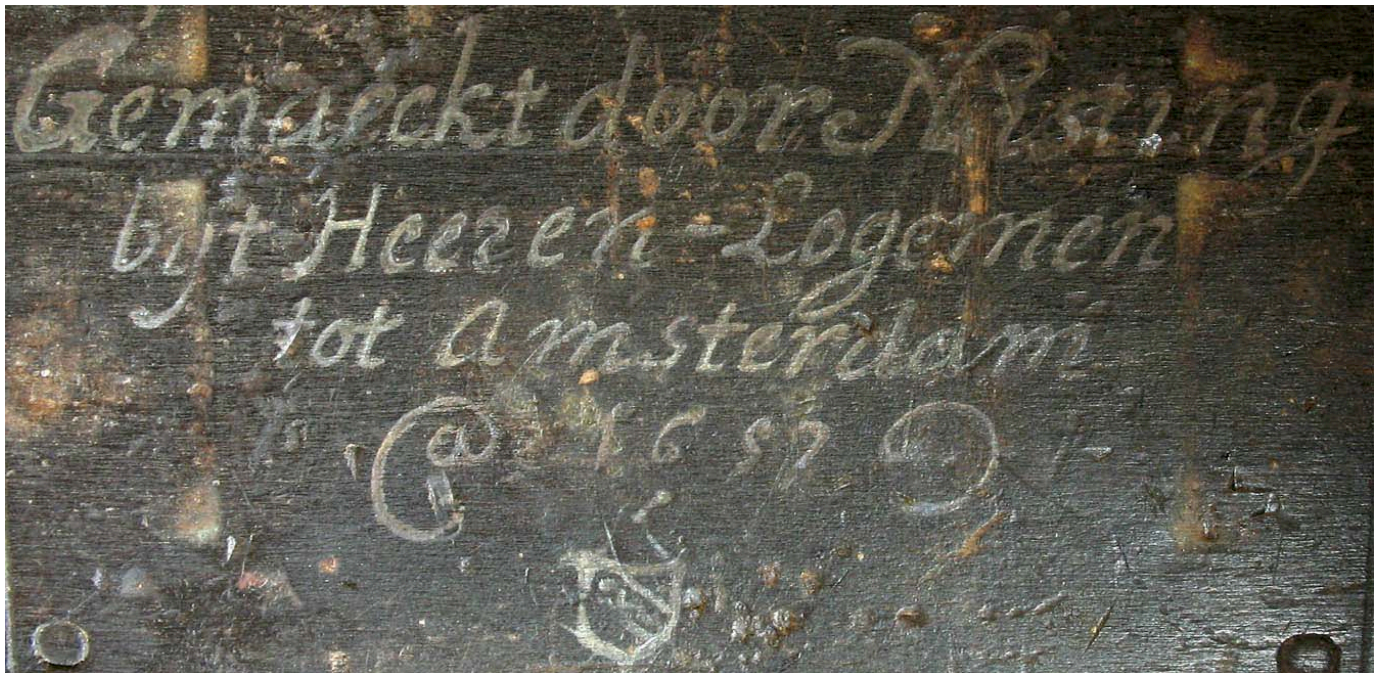 Gemaeckt door
bijt Heeren-Logemen
tot Amsterdam
@ 1657